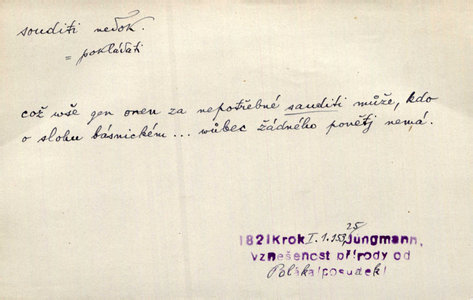 souditi nedok.
= pokládati
což wše gen onen za nepotřebné sauditi může, kdo
o slohu básnickém ... wůbec žádného powětj nemá.
25
1821 Krok I.1.152, Jungmann,
vznešenost přírody od
Poláka/posudek/